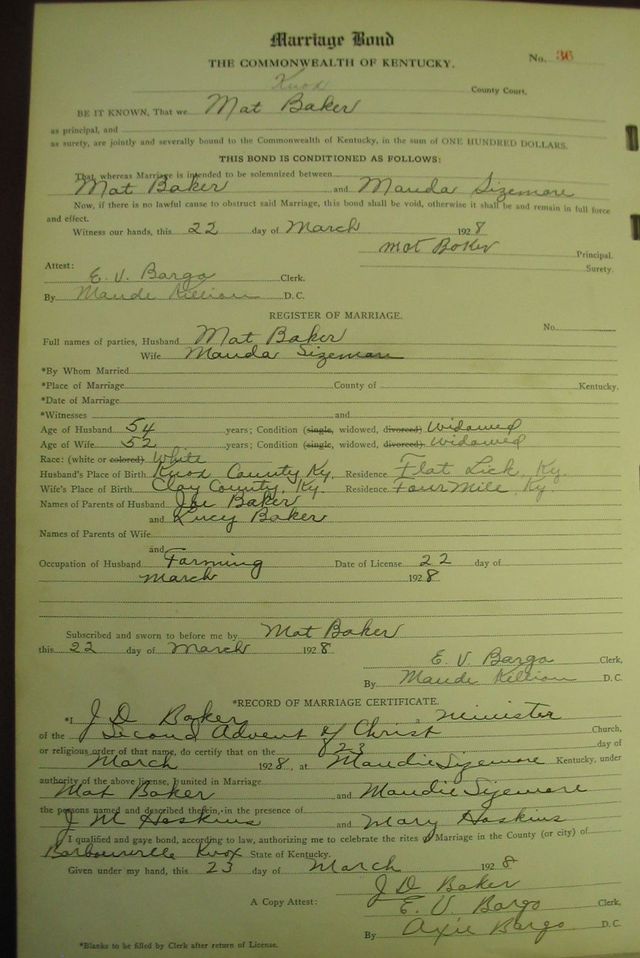 Marriage Bond
THE COMMONWEALTH OF KENTUCKY.
No. 36
Knox County Court.
BE IT KNOWN, That we Mat Baker
as principal, and
as surety, are jointly and severally bound to the Commonwealth of Kentucky, in the sum of ONE HUNDRED DOLLARS.
THIS BOND IS CONDITIONED AS FOLLOWS:
That, whereas Marriage is intended to be solemnized between
Mat Baker and Mauda Sizemore
Now, if there is no lawful cause to obstruct said Marriage, this bond shall be void, otherwise it shall be and remain in full force
and effect.
Witness our hands, this 22 day of March 1928
Mat Baker Principal.
Surety.
Attest:
E. V. Bargo Clerk.
By Maude Killion D. C.
REGISTER OF MARRIAGE.
No.
Full names of parties, Husband Mat Baker
Wife Mauda Sizemore
*By Whom Married
*Place of Marriage County of Kentucky.
*Date of Marriage
*Witnesses and
Age of Husband 54 years; Condition (single, widowed, divorced) Widowed
Age of Wife 52 years; Condition (single, widowed, divorced) Widowed
Race: (white or colored) White
Husband's Place of Birth Knox County Ky. Residence Flat Lick, Ky.
Wife's Place of Birth Clay County, Ky. Residence Four Mile, Ky.
Names of Parents of Husband Joe Baker
and Lucy Baker
Names of Parents of Wife
and
Occupation of Husband Farming Date of License 22 day of
March 1928
Subscribed and sworn to before me by Mat Baker
this 22 day of March 1928.
E. V. Bargo Clerk,
By Maude Killion D. C.
*RECORD OF MARRIAGE CERTIFICATE.
*I J D Baker a Minister
of the Second Advent of Christ Church,
or religious order of that name, do certify that on the 23 day of
March 1928, at Maudie Sizemore Kentucky, under
authority of the above license, I united in Marriage
Mat Baker and Maudie Sizemore
the persons named and described therein, in the presence of
J M Hoskins and Mary Hoskins
I qualified and gave bond, according to law, authorizing me to celebrate the rites of Marriage in the County (or city) of
Barbourville Knox State of Kentucky.
Given under my hand, this 23 day of March 1928
J D Baker
A Copy Attest: E. V. Bargo Clerk,
By Axie Bargo D. C.
*Blanks to be filled by Clerk after return of License.